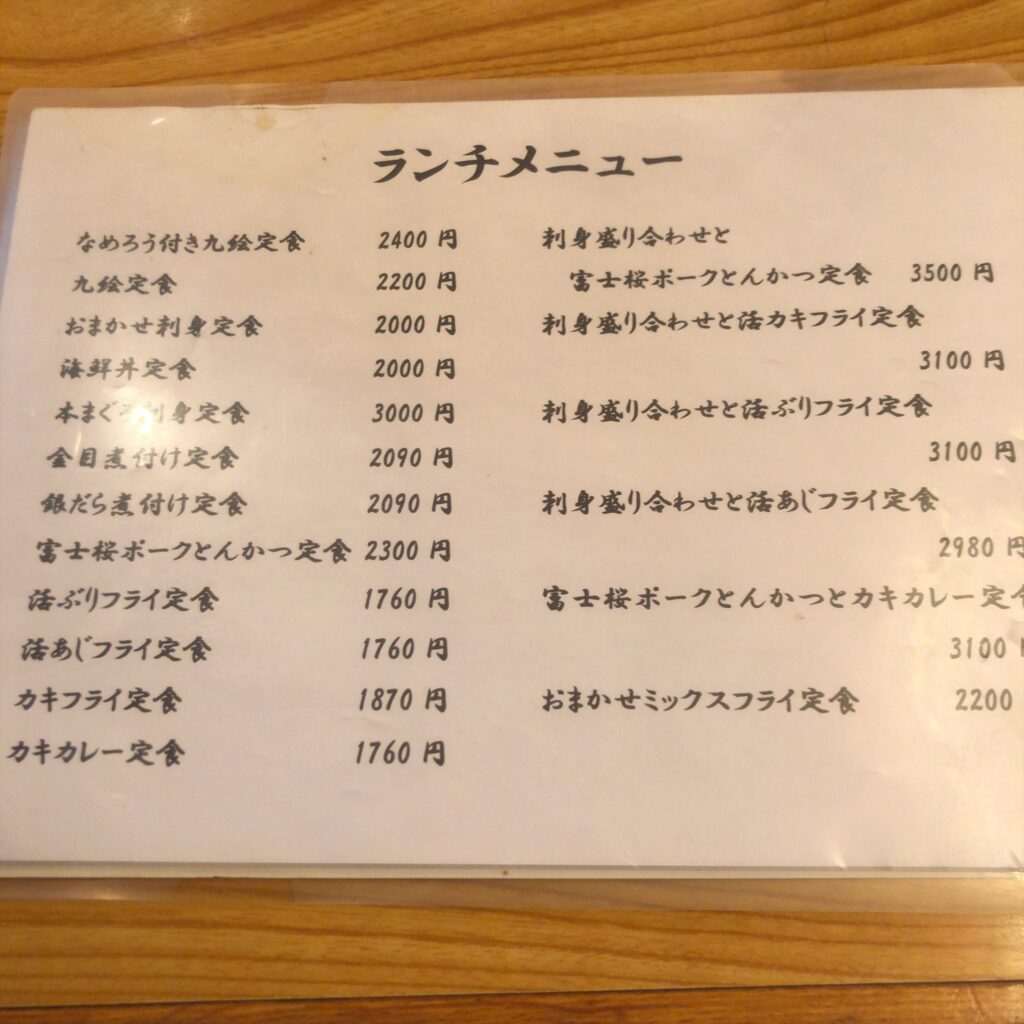 ランチメニュー
なめろう付き九絵定食 2400 円
九絵定食 2200 円
おまかせ刺身定食 2000 円
海鮮丼定食 2000 円
本まぐろ刺身定食 3000 円
金目煮付け定食 2090 円
銀だら煮付け定食 2090 円
富士桜ポークとんかつ定食 2300 円
活ぶりフライ定食 1760 円
活あじフライ定食 1760 円
カキフライ定食 1870 円
カキカレー定食 1760 円
刺身盛り合わせと
富士桜ポークとんかつ定食 3500 円
刺身盛り合わせと活カキフライ定食
3100 円
刺身盛り合わせと活ぶりフライ定食
3100 円
刺身盛り合わせと活あじフライ定食
2980 円
富士桜ポークとんかつとカキカレー定食
3100
おまかせミックスフライ定食 2200